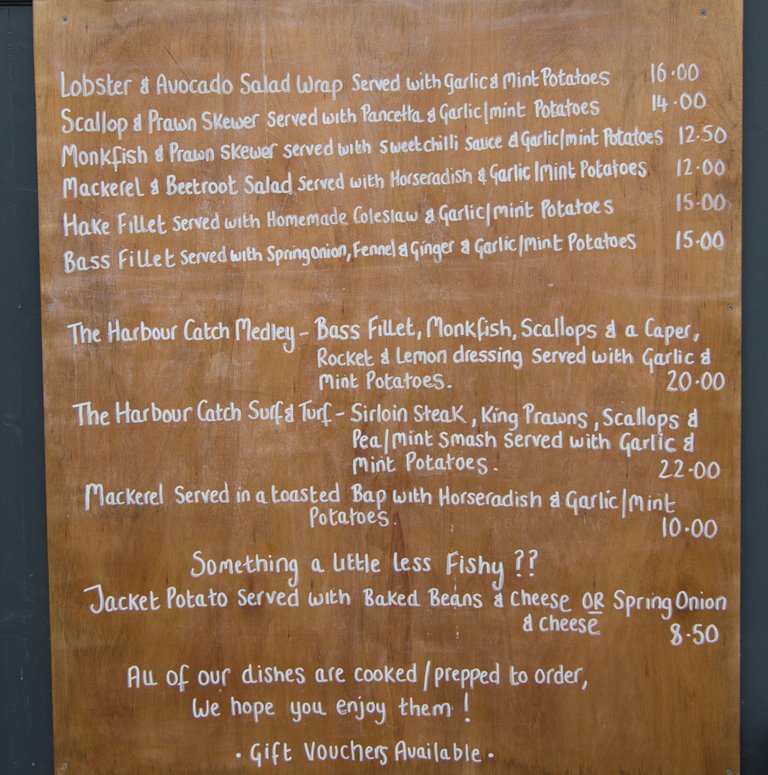 Lobster & Avocado Salad Wrap Served with Garlic & Mint Potatoes 16.00
Scallop & Prawn Skewer Served with Pancetta & Garlic/mint Potatoes 14.00
Monkfish & Prawn Skewer served with Sweet chilli Sauce & Garlic/mint Potatoes 12.50
Mackerel & Beetroot Salad Served with Horseradish & Garlic/Mint Potatoes 12.00
Hake Fillet Served with Homemade Coleslaw & Garlic/mint Potatoes 15.00
Bass Fillet Served with Spring Onion, Fennel & Ginger & Garlic/Mint Potatoes 15.00
The Harbour Catch Medley - Bass Fillet, Monkfish, Scallops & a Caper,
Rocket & Lemon dressing Served with Garlic &
Mint Potatoes. 20.00
The Harbour Catch Surf & Turf - Sirloin Steak, King Prawns, Scallops &
Pea/mint Smash Served with Garlic &
Mint Potatoes. 22.00
Mackerel Served in a toasted Bap with Horseradish & Garlic/Mint
Potatoes. 10.00
Something a little less Fishy ??
Jacket Potato Served with Baked Beans & Cheese OR Spring Onion
& Cheese 8.50
All of our dishes are cooked/prepped to order,
We hope you enjoy them !
· Gift Vouchers Available ·